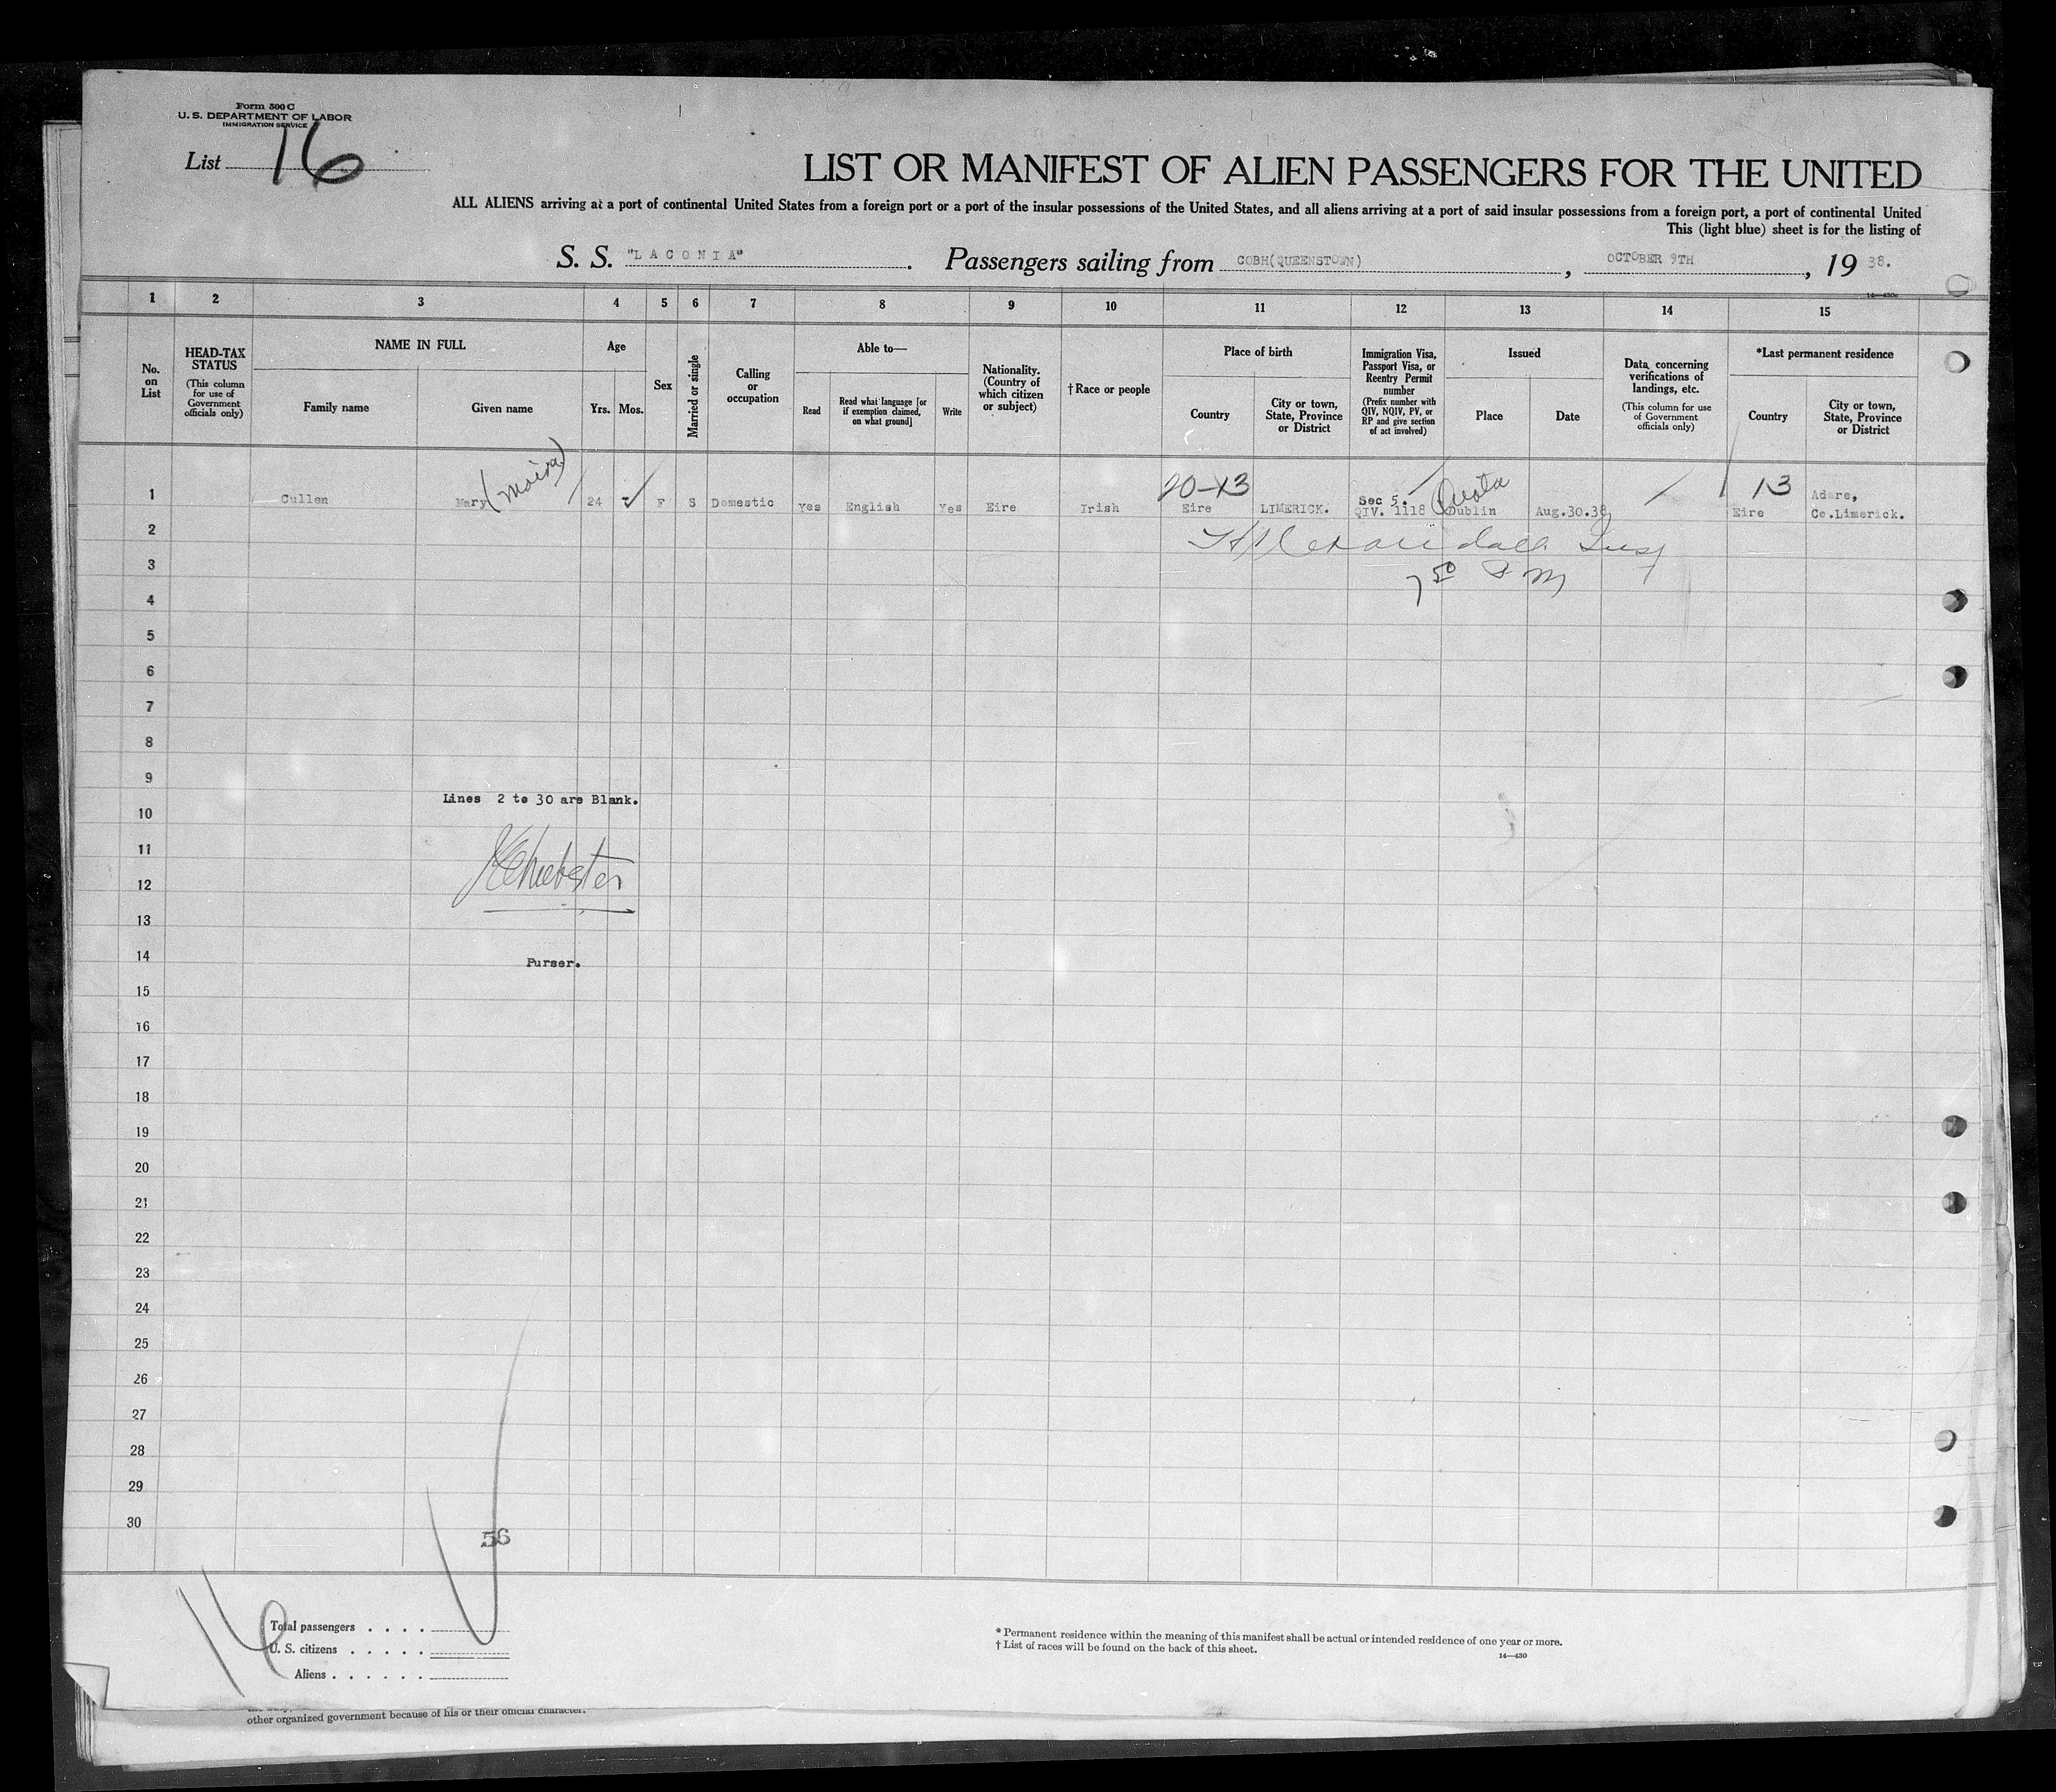 Form 500 C
U. S. DEPARTMENT OF LABOR
IMMIGRATION SERVICE
List 16
LIST OR MANIFEST OF ALIEN PASSENGERS FOR THE UNITED
ALL ALIENS arriving at a port of continental United States from a foreign port or a port of the insular possessions of the United States, and all aliens arriving at a port of said insular possessions from a foreign port, a port of continental United
This (light blue) sheet is for the listing of
S. S. "LACONIA". Passengers sailing from COBH(QUEENSTOWN), OCTOBER 9TH, 19 38.
14—430c
1 2 3 4 5 6 7 8 9 10 11 12 13 14 15
No. on List
HEAD-TAX STATUS
(This column for use of Government officials only)
NAME IN FULL
Family name
Given name
Age
Yrs.
Mos.
Sex
Married or single
Calling or occupation
Able to—
Read
Read what language [or if exemption claimed, on what ground]
Write
Nationality. (Country of which citizen or subject)
† Race or people
Place of birth
Country
City or town, State, Province or District
Immigration Visa, Passport Visa, or Reentry Permit number
(Prefix number with QIV, NQIV, PV, or RP and give section of act involved)
Issued
Place
Date
Data concerning verifications of landings, etc.
(This column for use of Government officials only)
*Last permanent residence
Country
City or town, State, Province or District
(Moira) 20-13 Sec 5. Quota 13 Adare,
1 Cullen Mary 24 F S Domestic Yes English Yes Eire Irish Eire LIMERICK. QIV. 1118 Dublin Aug.30.38 Eire Co.Limerick.
2
3
7 50 P M
4
5
6
7
8
9
Lines 2 to 30 are Blank.
10
11
Webster
12
13
14
Purser.
15
16
17
18
19
20
21
22
23
24
25
26
27
28
29
30
56
16
Total passengers
U. S. citizens
Aliens
* Permanent residence within the meaning of this manifest shall be actual or intended residence of one year or more.
† List of races will be found on the back of this sheet.
14—430
other organized government because of his or their official character.